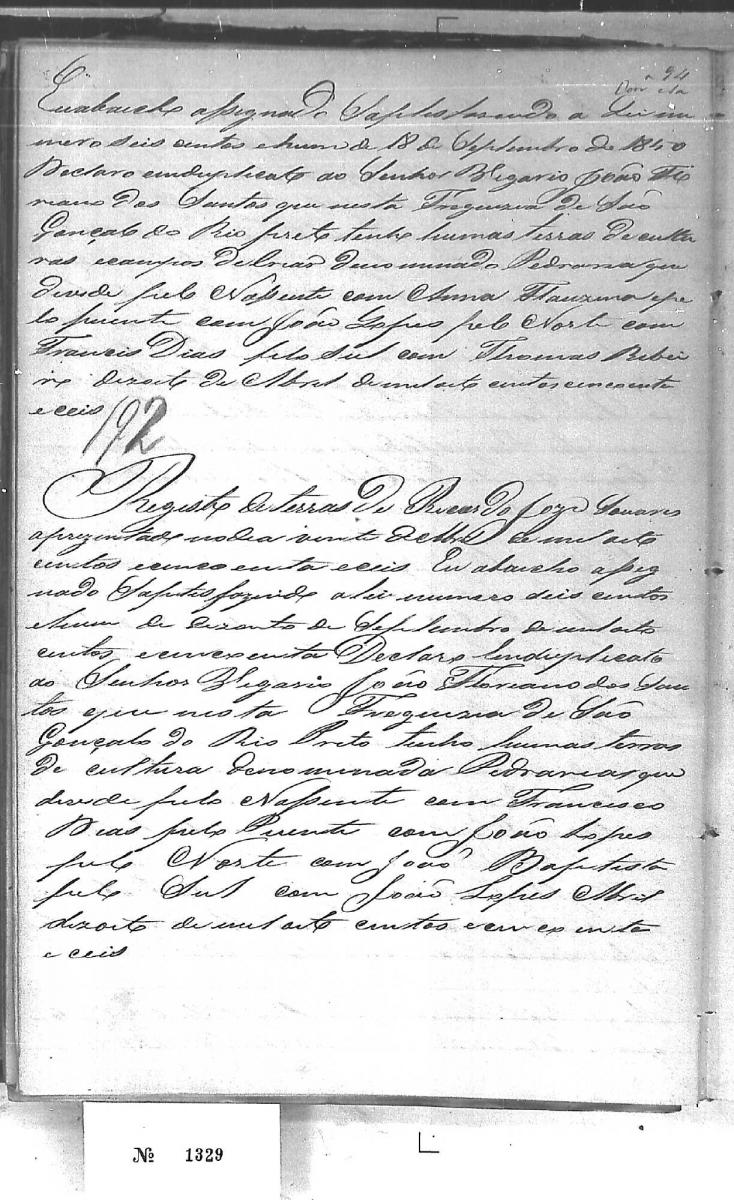 94
Eu abaicho assignado Saptesfazendo a Lei nu
mero seis centos e hum de 18 de Septembro de 1850
Declaro emduplicato ao Senhor Vegario João Flo
riano dos Santos que nesta Freguezia de São
Gonçalo do Rio preto tenho humas terras de cultu
ras e campos de Criar denominado Pedraria que
devide pelo Nassente com Anna Flauzina e pe
lo puente com João Lopes pelo Norte com
Francis Dias pelo Sul com Thomas Ribei
ro dezoito de Abril de mil oito centos cincoente
e ceis
192
Registo de terras de Ricardo Joze Soares
aprezentado no dia vinte de Abril de mil oito
centos e cincoenta e ceis Eu abaicho asseg
nado Saptesfazendo a lei numero seis centos
e hum de dezoito de Septembro de mil oito
centos e cincoenta Declaro Emduplicato
ao Senhor Vegario João Floriano dos San
tos que nesta Freguezia de São
Gonçalo do Rio Preto tenho humas terras
de cultura denominada Pedrarias que
devede pelo Nassente com Francisco
Dias pelo Puente com João Lopes
pelo Norte com João Baptista
pelo Sul com João Lopes Abril
dezoito de mil oito centos e cincoenta
e ceis
Nº 1329